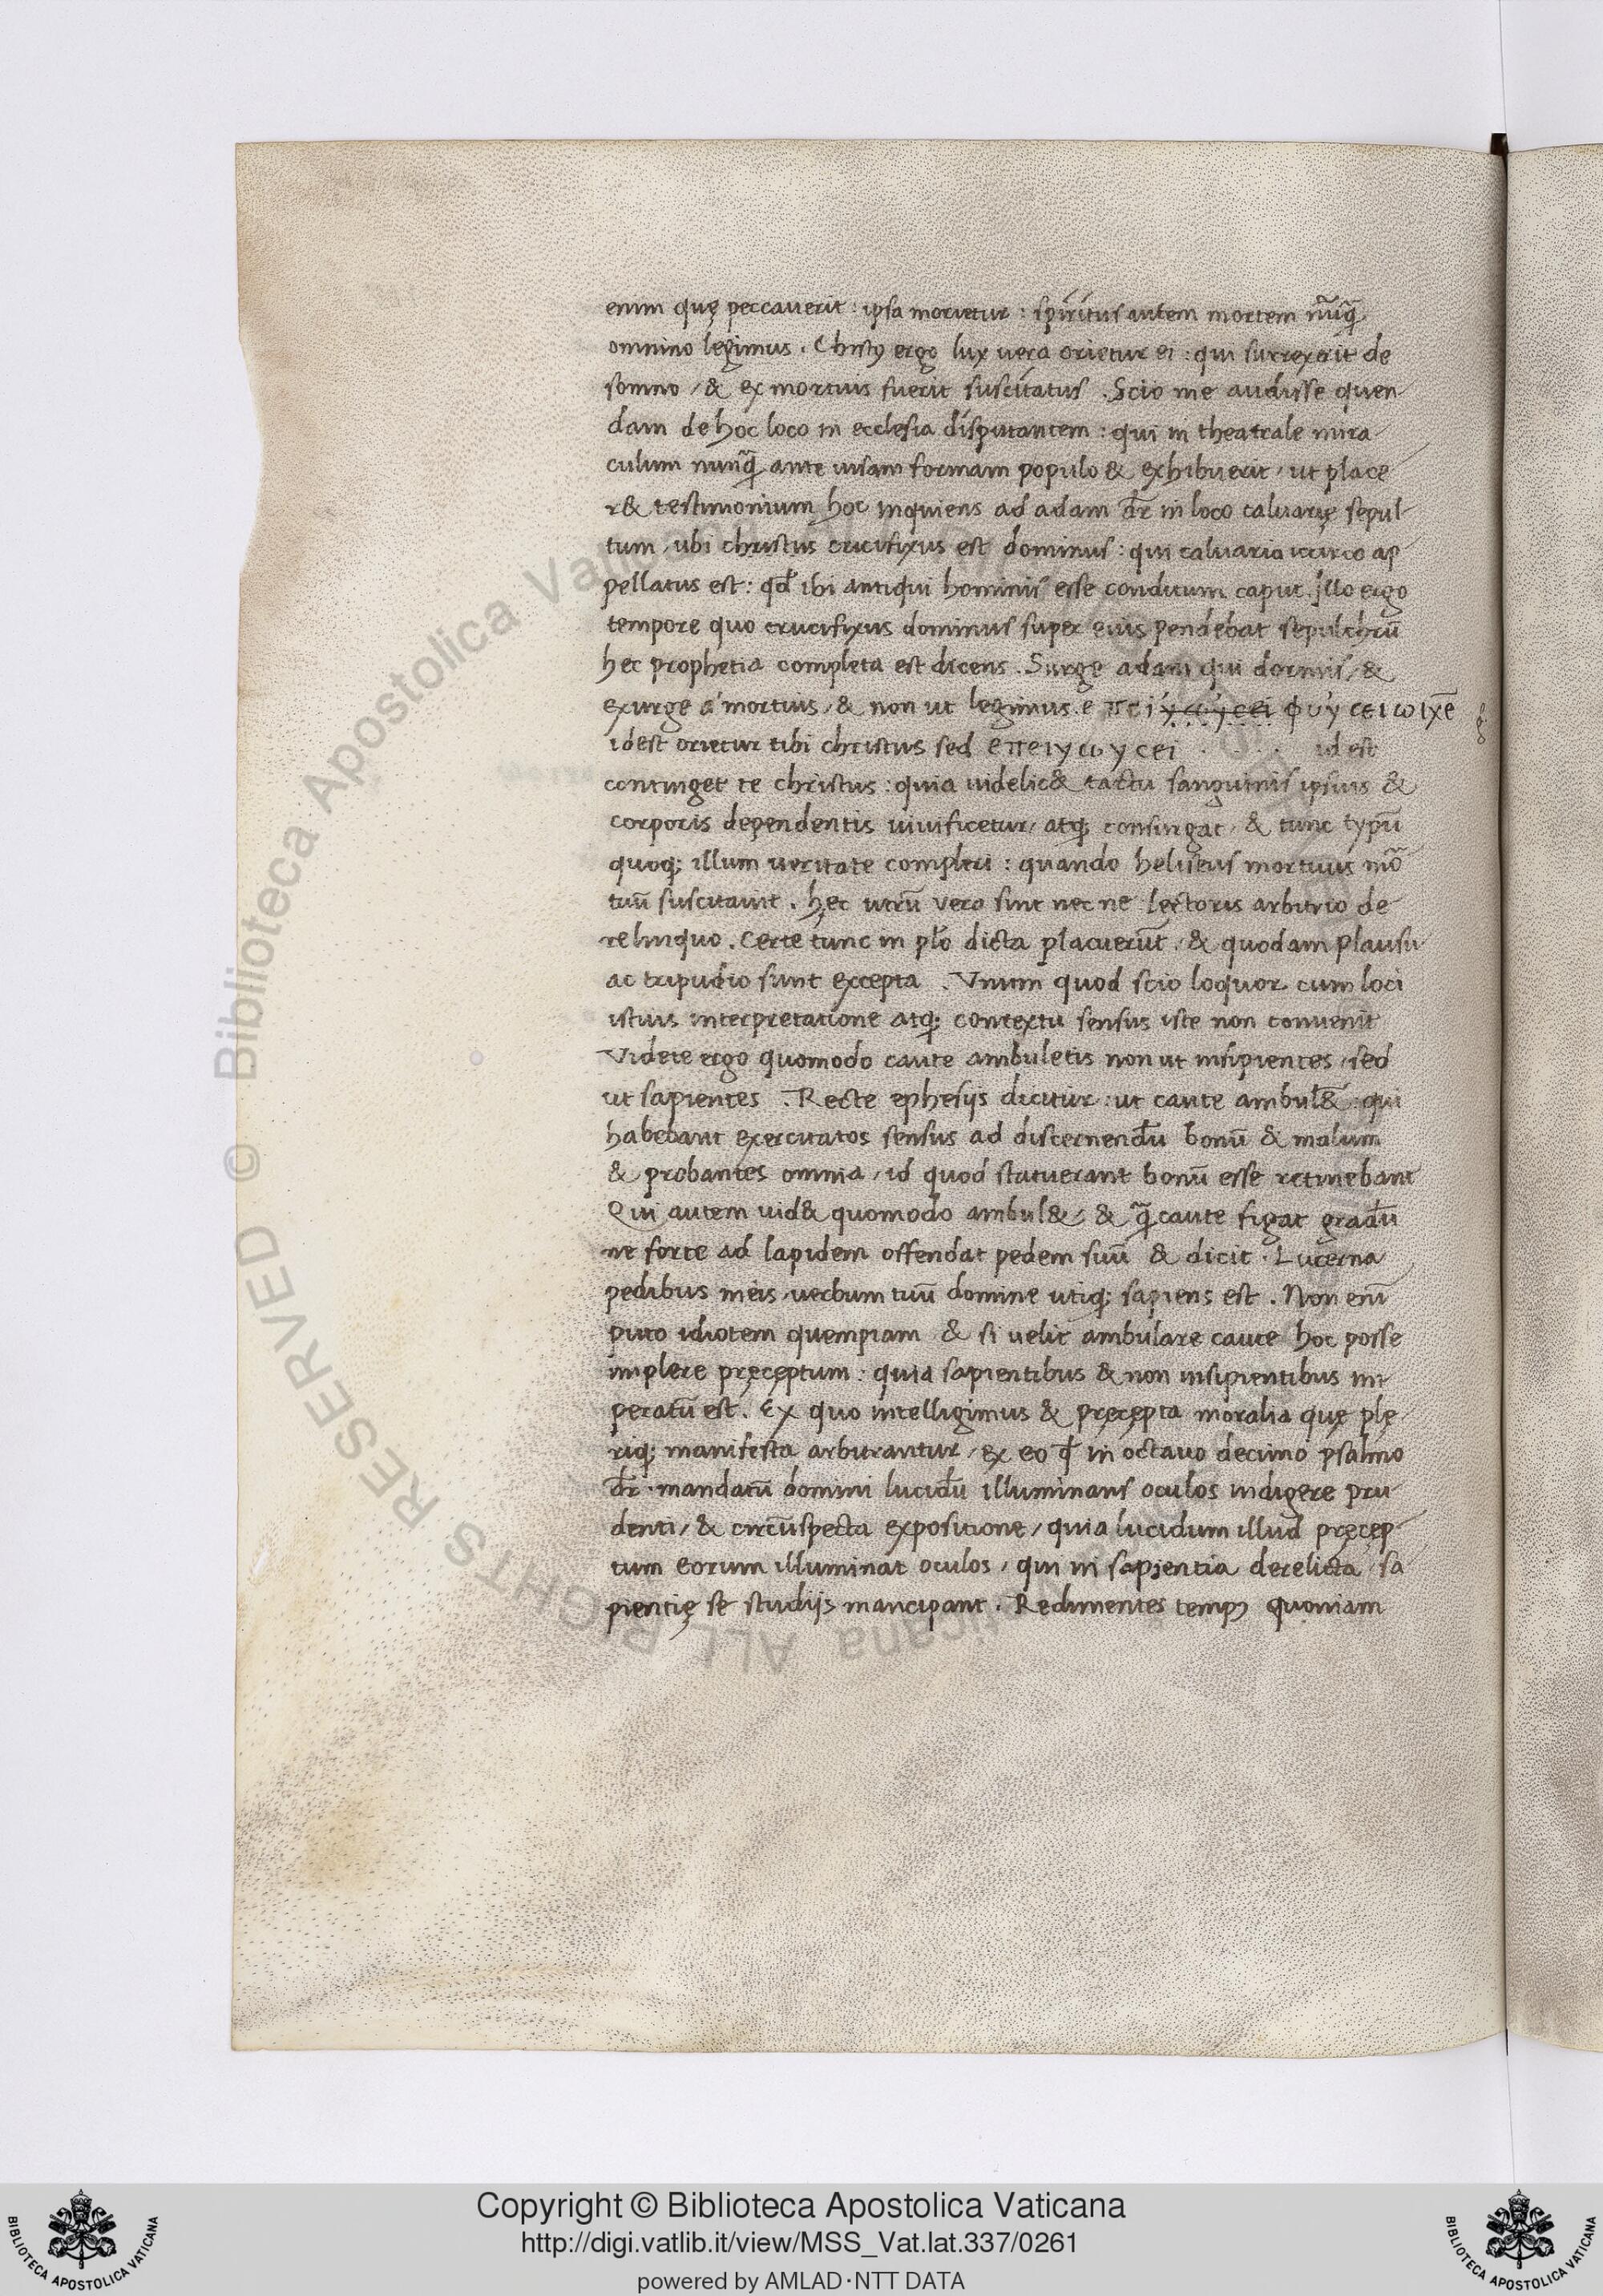 enim quę peccauerit : ipsa morietur : spiritus autem mortem nūq̄
omnino legimus . Christꝰ ergo lux uera orietur ei : qui surrexerit de
somno / & ex mortuis fuerit suscitatus . Scio me audisse quen
dam de hoc loco in ecclesia disputantem : qui in theatrale mira
culum nunq̄ ante uisam formam populo & exhibuerit / ut place
r& testimonium hoc inquiens ad adam dr̄ in loco caluarię sepul
tum / ubi christus crucifixus est dominus : qui caluaria ap
pellatus est : qđ ibi antiqui hominis esse conditum caput . Illo ergo
tempore quo crucifixus dominus super eius pendebat sepulchrū
hec prophetia completa est dicens . Surge adam qui dormis / &
exurge a mortuis / & non ut legimus . e πει ύωύσει φυύ σειωιχ̄ε
idest orietur tibi christus sed επειγωγσει . . . . . id est
continget te christus : quia uidelic& tactu sanguinis ipsius &
corporis dependentis uiuificetur / atq; consurgat / & tunc typū
quoq; illum ueritate compleri : quando heliseus mortuus mō
tuū suscitauit . hęc utrū vero sint nec ne lectoris arbitrio de
relinquo . Certe tunc in plo̅ dicta placuerūt / & quodam plausu
ac tripudio sunt excepta . Vnum quod scio loquor cum loci
istius interpretatione atq; contextu sensus iste non conuenit
Videte ergo quomodo caute ambuletis non ut insipientes / sed
ut sapientes . Recte ephesijs dicitur : ut caute ambul& : qui
habebant exercitatos sensus ad discernendū bonū & malum
& probantes omnia / id quod statuerant bonū esse retinebant
Qui autem uid& quomodo ambul& / & q̄ caute figat gradū
ne forte ad lapidem offendat pedem suū & dicit . Lucerna
pedibus meis / uerbum tuū domine utiq; sapiens est . Non eni̅
puto idiotem quempiam & si uelit ambulare caute hoc posse
implere pręceptum : quia sapientibus & non insipientibus im
peratū est . Ex quo intelligimus & pręcepta moralia quę plę
riq; manifesta arbitrantur / ex eo q̄ in octauo decimo psalmo
dr̄ . mandatū domini lucidū illuminans oculos indigere pru
denti / & circūspecta expositione / quia lucidum illud pręcep
tum eorum illuminat oculos / qui in sapientia derelicta / sa
pientię se studijs mancipant . Redimentes tempꝰ quoniam
© Biblioteca Apostolica Vaticana ALL RIGHTS RESERVED
Copyright © Biblioteca Apostolica Vaticana
http://digi.vatlib.it/view/MSS_Vat.lat.337/0261
powered by AMLAD·NTT DATA
BIBLIOTECA APOSTOLICA VATICANA
BIBLIOTECA APOSTOLICA VATICANA